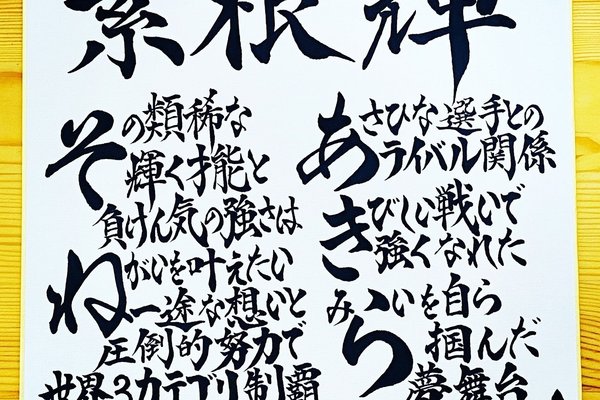 素根輝
その類稀な
輝く才能と
負けん気の強さは
ねがいを叶えたい
一途な想いと
圧倒的努力で
世界3カテゴリ制覇
あさひな選手との
ライバル関係
きびしい戦いで
強くなれた
みらいを自ら
掴んだ
夢舞台